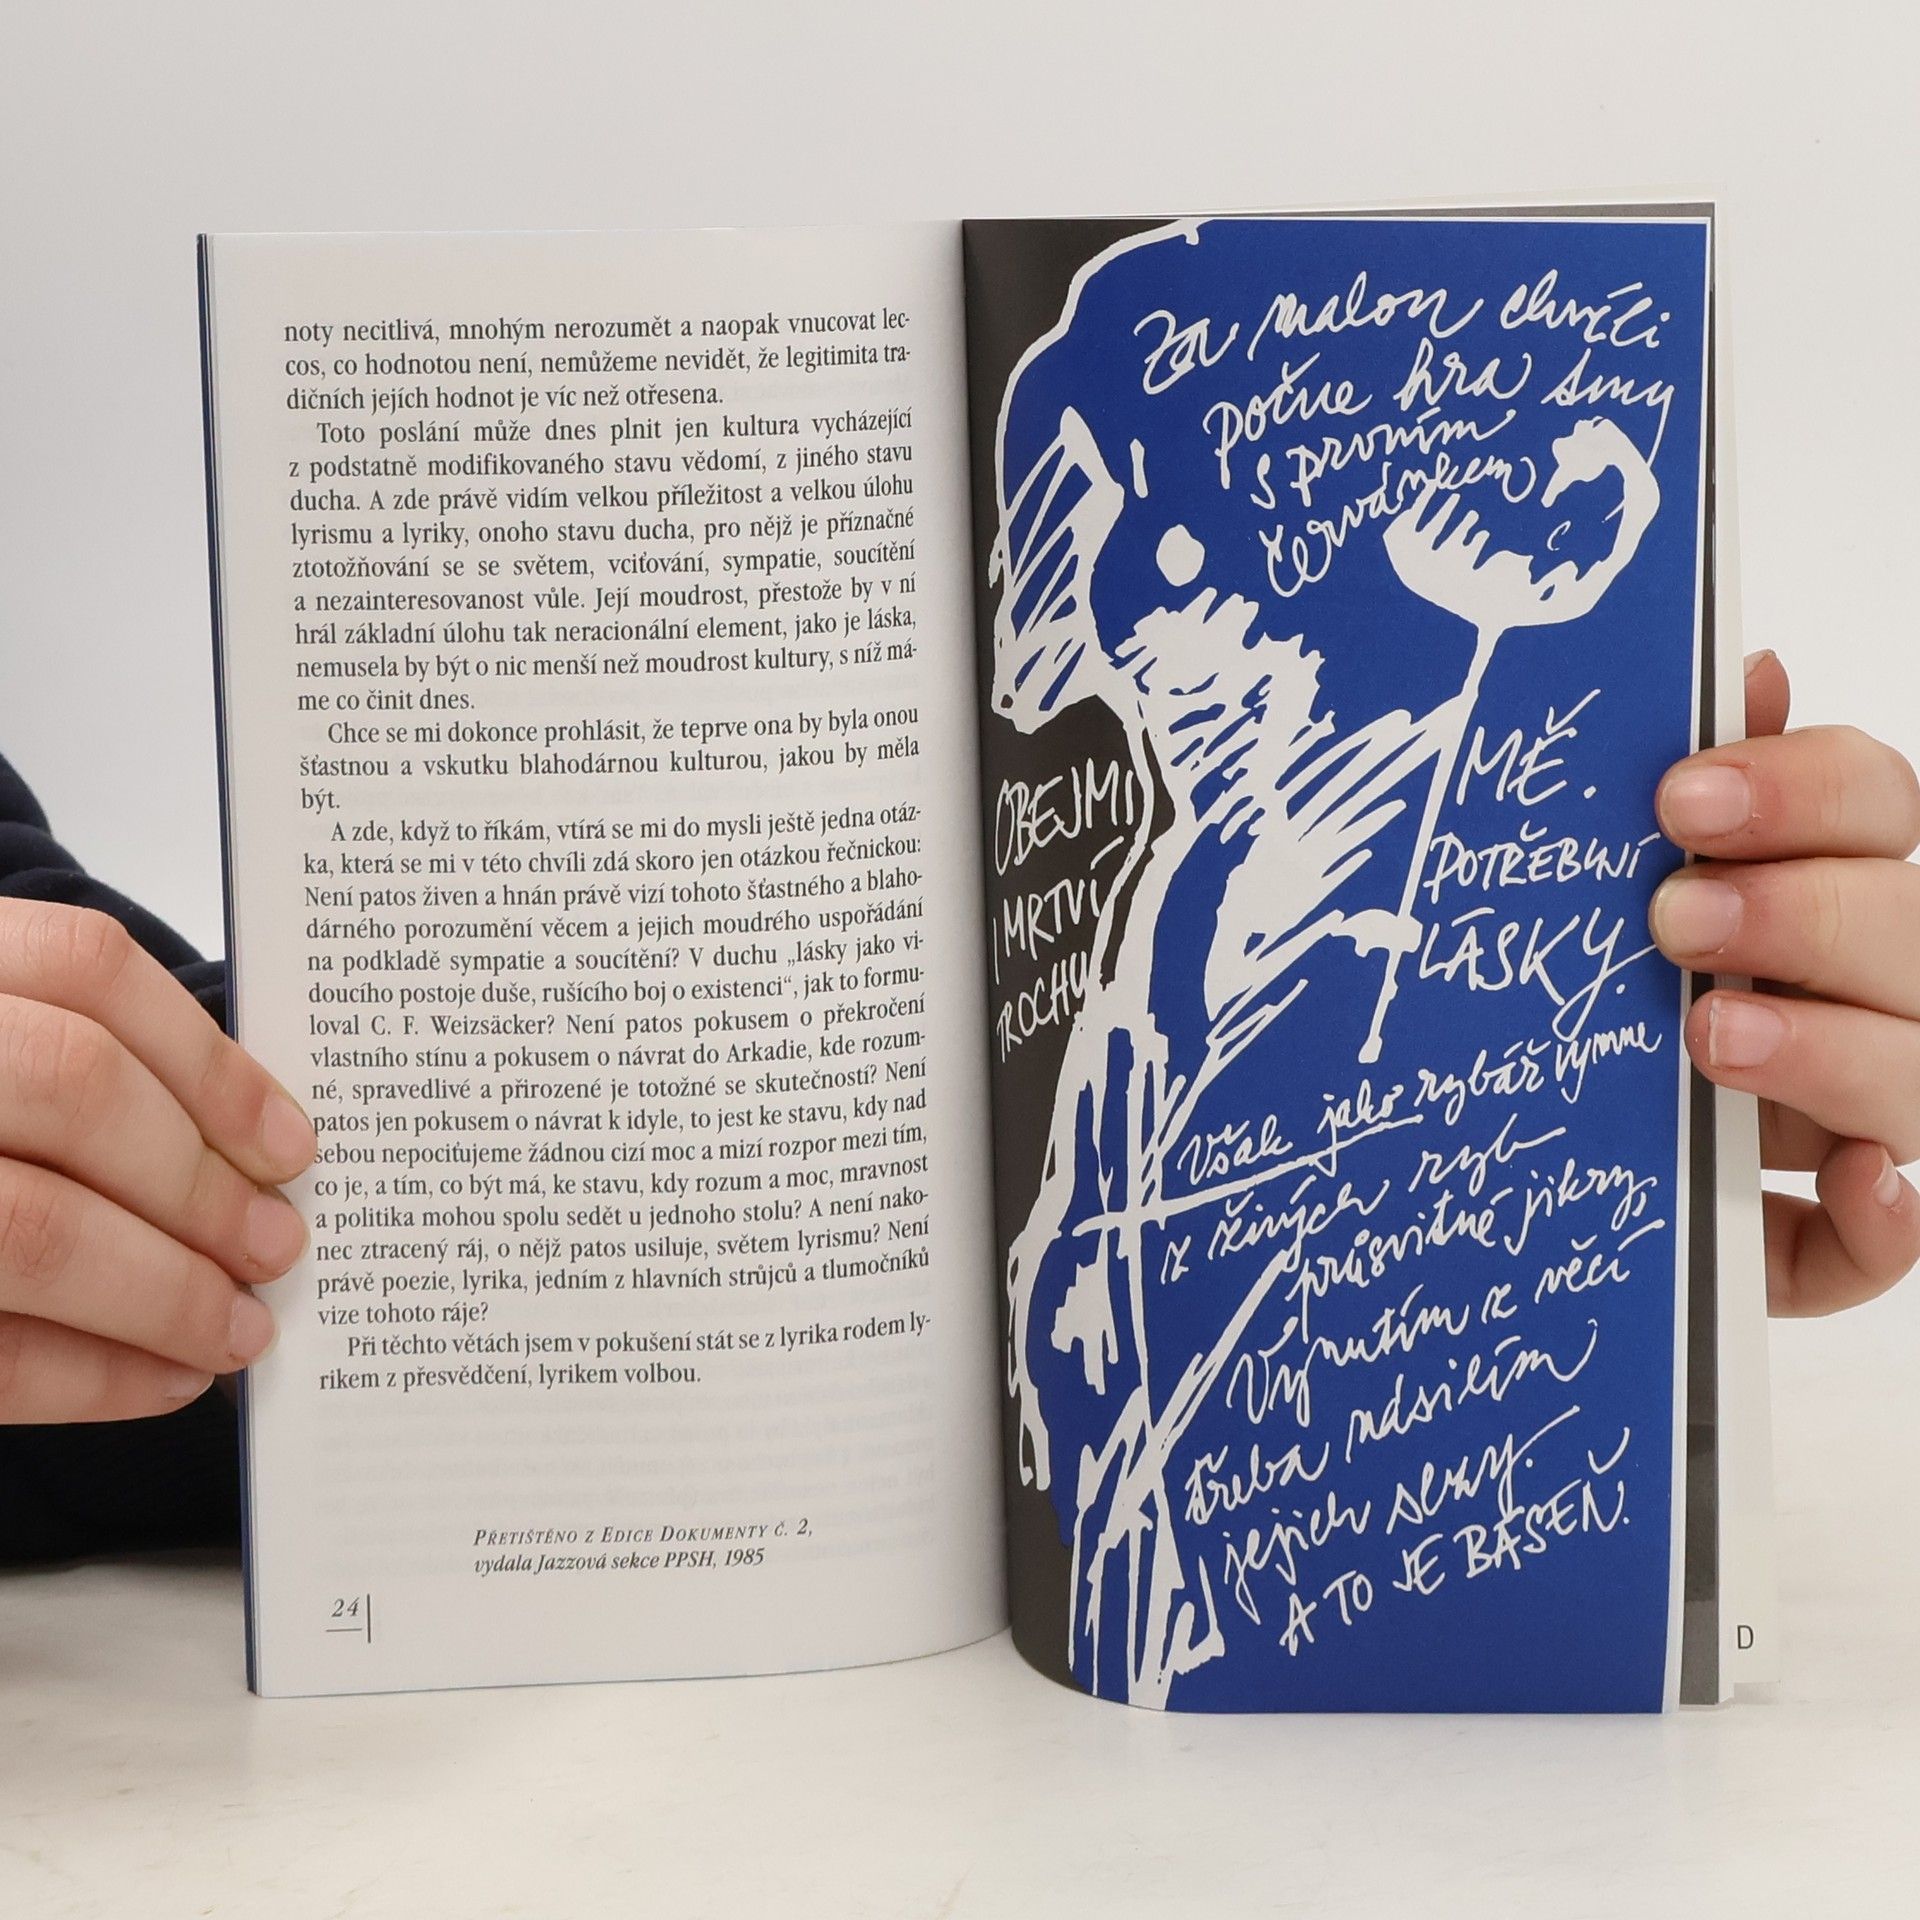 noty necitlivá, mnohým nerozumět a naopak vnucovat lec-
cos, co hodnotou není, nemůžeme nevidět, že legitimita tra-
dičních jejích hodnot je víc než otřesena.
Toto poslání může dnes plnit jen kultura vycházející
z podstatně modifikovaného stavu vědomí, z jiného stavu
ducha. A zde právě vidím velkou příležitost a velkou úlohu
lyrismu a lyriky, onoho stavu ducha, pro nějž je příznačné
ztotožňování se se světem, vciťování, sympatie, soucítění
a nezainteresovanost vůle. Její moudrost, přestože by v ní
hrál základní úlohu tak neracionální element, jako je láska,
nemusela by být o nic menší než moudrost kultury, s níž má-
me co činit dnes.
Chce se mi dokonce prohlásit, že teprve ona by byla onou
šťastnou a vskutku blahodárnou kulturou, jakou by měla
být.
A zde, když to říkám, vtírá se mi do mysli ještě jedna otáz-
ka, která se mi v této chvíli zdá skoro jen otázkou řečnickou:
Není patos živen a hnán právě vizí tohoto šťastného a blaho-
dárného porozumění věcem a jejich moudrého uspořádání
na podkladě sympatie a soucítění? V duchu „lásky jako vi-
doucího postoje duše, rušícího boj o existenci“, jak to formu-
loval C. F. Weizsäcker? Není patos pokusem o překročení
vlastního stínu a pokusem o návrat do Arkadie, kde rozum-
né, spravedlivé a přirozené je totožné se skutečností? Není
patos jen pokusem o návrat k idyle, to jest ke stavu, kdy nad
sebou nepociťujeme žádnou cizí moc a mizí rozpor mezi tím,
co je, a tím, co být má, ke stavu, kdy rozum a moc, mravnost
a politika mohou spolu sedět u jednoho stolu? A není nako-
nec ztracený ráj, o nějž patos usiluje, světem lyrismu? Není
právě poezie, lyrika, jedním z hlavních strůjců a tlumočníků
vize tohoto ráje?
Při těchto větách jsem v pokušení stát se z lyrika rodem ly-
rikem z přesvědčení, lyrikem volbou.
PŘETIŠTĚNO Z EDICE DOKUMENTY Č. 2,
vydala Jazzová sekce PPSH, 1985
24
Za malou chvíli
počne hra tmy
s prvním
červánkem
OBEJMI
MĚ.
I MRTVÍ
POTŘEBUJÍ
TROCHU
LÁSKY.
Však jako rybář vymne
z živých ryb
průsvitné jikry,
Vynutím z věcí
třeba násilím
jejich slzy.
A TO JE BÁSEŇ.
D